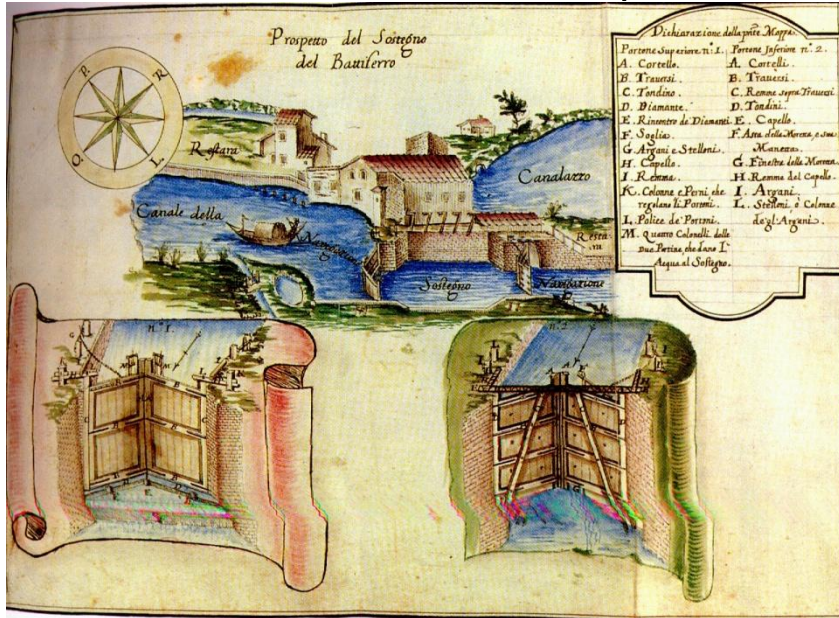 Prospetto del Sostegno
del Battiferro
P.
R
O.
L.
Restara
Canale della
Navigatione
Canalazzo
Resta
ra
Sostegno
Navigatione
Dichiarazione della pñte Mappa.
Portone Superiore n.º 1.
A. Cortello.
B. Traversi.
C. Tondino.
D. Diamante.
E. Rincontro de Diamanti
F. Soglia.
G. Argani e Stelloni.
H. Capello.
I. Remma.
K. Colonne e Perni che
regolano li Portoni.
L. Police de Portoni.
M. Quattro Colonelli delle
Due Portine che dano L'
Acqua al Sostegno.
Portone Inferiore n.º 2.
A. Cortelli.
B. Traversi.
C. Remma sopra Traversi
D. Tondini.
E. Capello.
F. Asta della Morena, e sua
Manezza.
G. Finestra della Morena.
H. Remma del Capello.
I. Argani.
L. Stelloni ò Colonne
de gl'Argani.
n.º 1.
n.º 2.